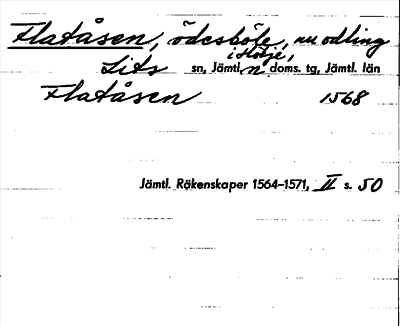 Flatåsen, ödesböle, nu odling
i Höje,
Lits sn, Jämtl. n doms. tg, Jämtl. län
Flatåsen 1568
Jämtl. Räkenskaper 1564–1571, II s. 50